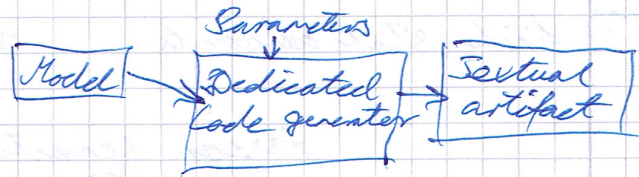 Parameters
Model
Dedicated
Code generator
Textual
artifact